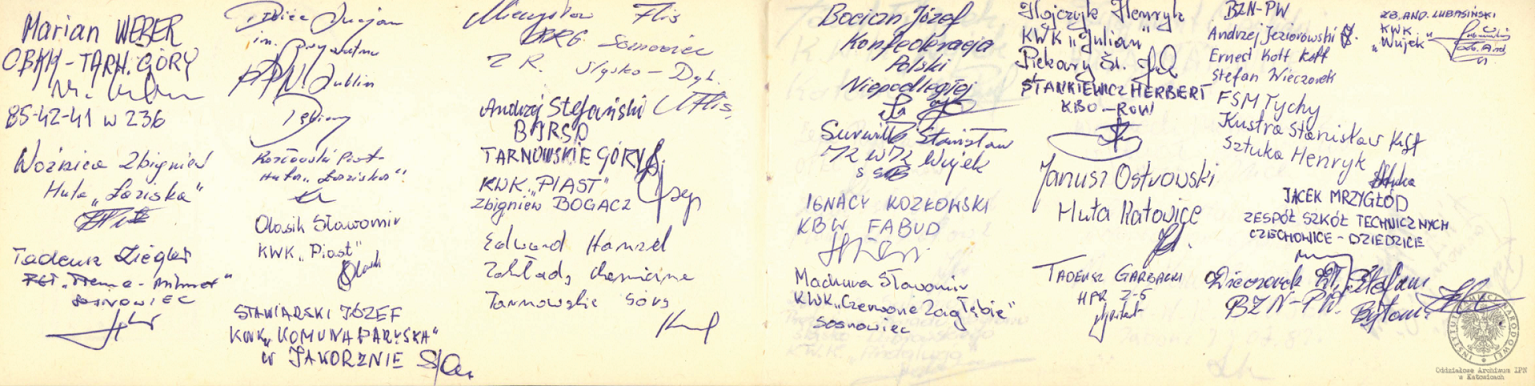 Marian WEBER
OBKH-TARN. GÓRY
85-42-41 w 236
Woźnica Zbigniew
Huta „Łaziska"
Tadeusz Ziegler
SOSNOWIEC
Lucjan
in.
Lublin
Huta „Łaziska"
Olasik Sławomir
KWK „Piast"
STAWIARSKI JÓZEF
KWK „KOMUNA PARYSKA"
w JAWORZNIE
Mieczysław Flis
Sosnowiec
Z R. Śląsko-Dąb.
Andrzej Stefański
TARNOWSKIE GÓRY
KWK „PIAST"
Zbigniew BOGACZ
Edward Hamzel
Zakłady chemiczne
Tarnowskie Góry
Bocian Józef
Konfederacja
Polski
Niepodległej
Surwiłło Stanisław
Wujek
IGNACY KOZŁOWSKI
KBW FABUD
Maduwa Sławomir
KWK „Czerwone Zagłębie"
Sosnowiec
Henryk
KWK „Julian"
Piekary Śl.
STANKIEWICZ HERBERT
KBO-ROW
Janusz Ostrowski
Huta Katowice
TADEUSZ GARBACKI
HPR Z-5
BZN-PW
Andrzej Jeziorowski
Ernest Kott Kott
Stefan Wieczorek
FSM Tychy
Kustra Stanisław
Sztuka Henryk
Sztuka
JACEK MRZYGŁÓD
ZESPÓŁ SZKÓŁ TECHNICZNYCH
CZECHOWICE-DZIEDZICE
BZN-PW. Bytom
AND. LUBASIŃSKI
KWK
"Wujek"
Oddziałowe Archiwum IPN
w Katowicach